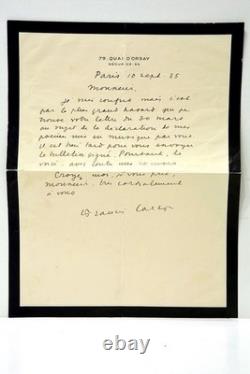 79, QUAI D'ORSAY
Paris 10 sept. 35
Monsieur,
Je suis confus mais c'est
par le plus grand hasard que je
trouve votre lettre du 30 mars
au sujet de la déclaration de mes
poésies mis en musique par vous
il est bien tard pour vous envoyer
le bulletin signé. Pourtant, le
voici. avec toutes mes
Croyez moi, je vous prie,
monsieur, très cordialement
à vous
Francis Carco